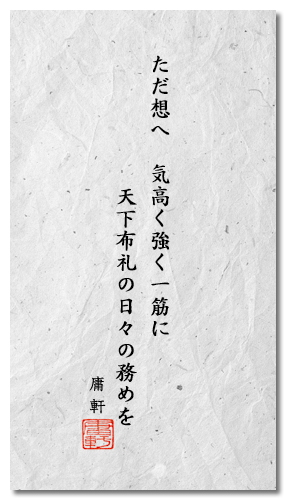 ただ想へ　気高く強く一筋に
天下布礼の日々の務めを
庸軒
庸軒